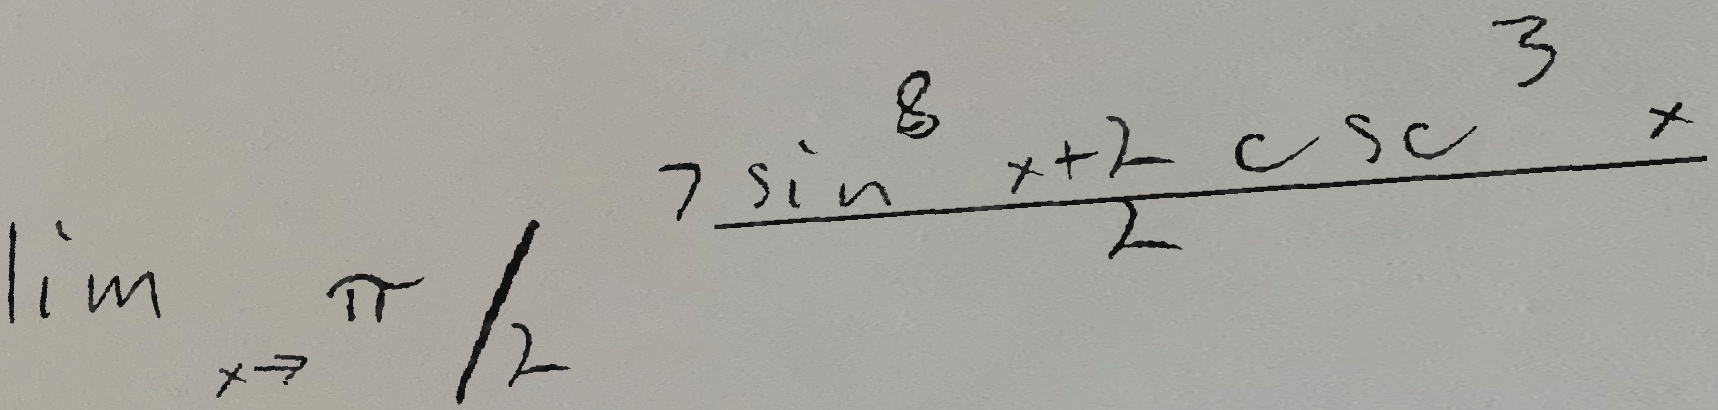 lim x→π/2 (7 sin^8 x+2 csc^3 x)/2